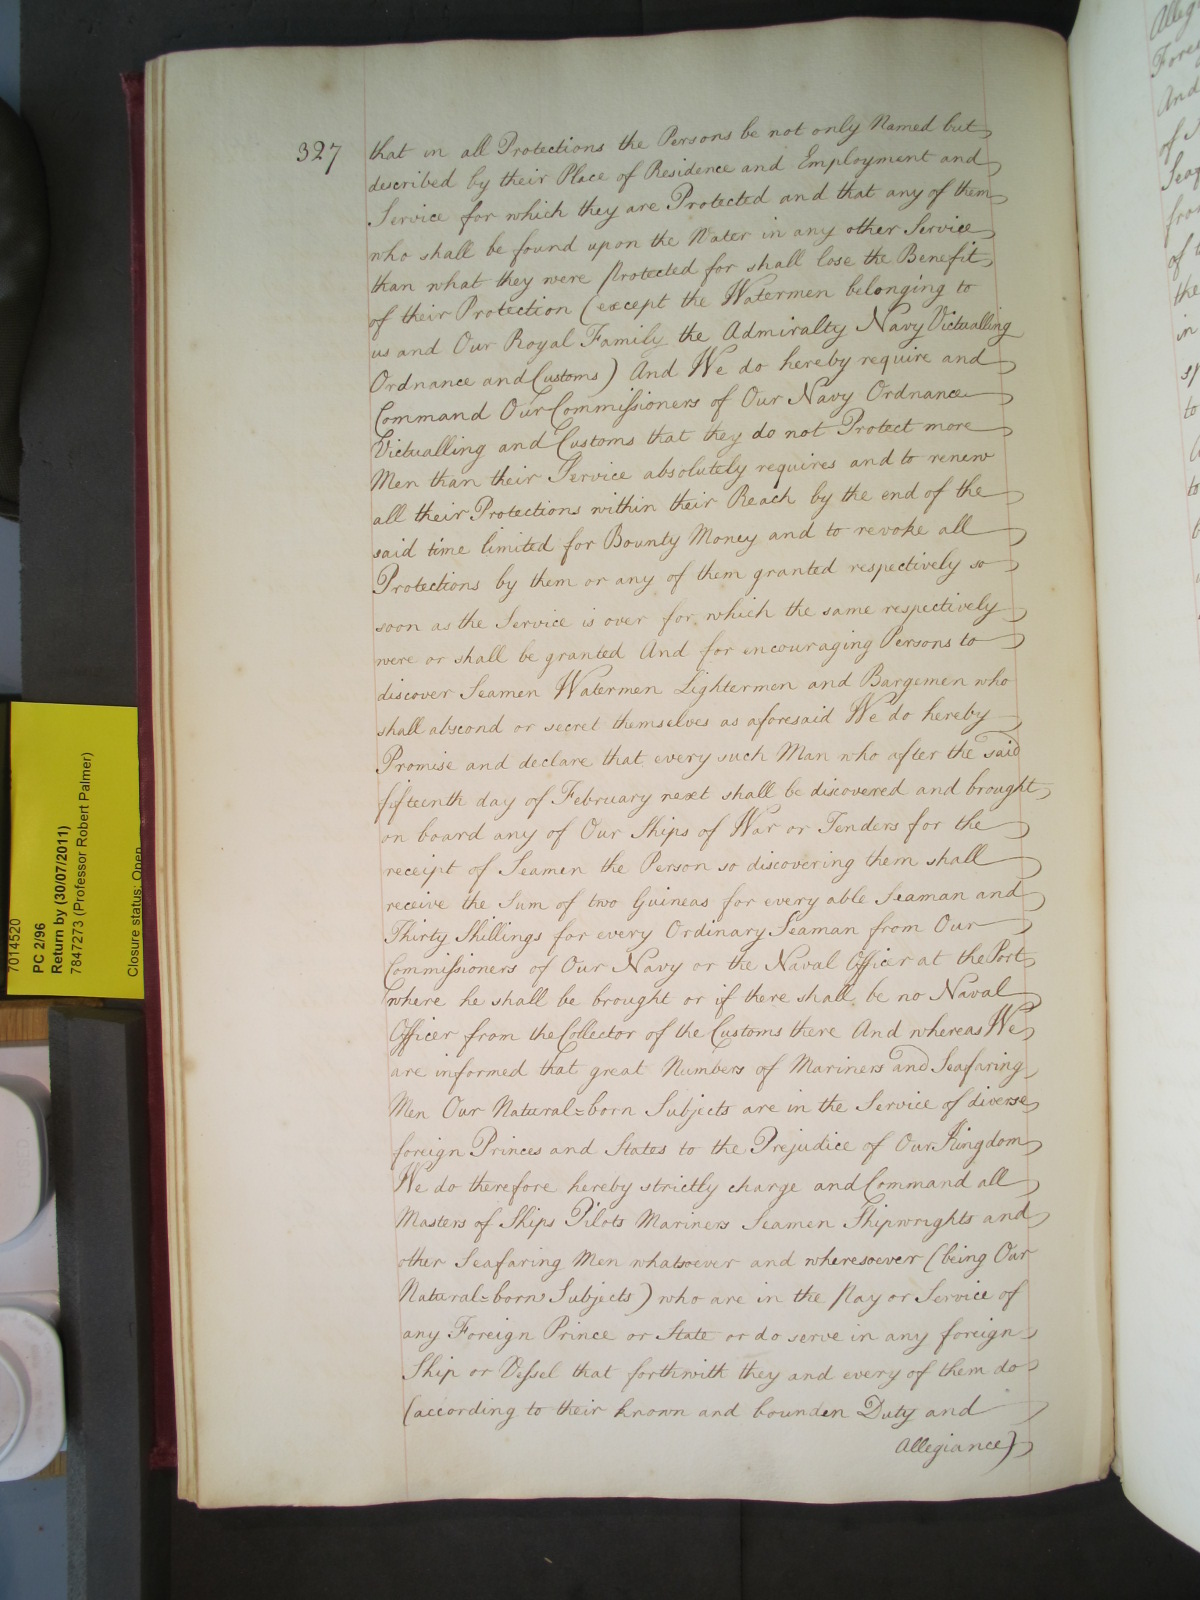 327
that in all Protections the Persons be not only Named but
described by their Place of Residence and Employment and
Service for which they are Protected and that any of them
who shall be found upon the Water in any other Service
than what they were protected for shall lose the Benefit
of their Protection (except the Watermen belonging to
us and Our Royal Family the Admiralty Navy Victualling
Ordnance and Customs) And We do hereby require and
Command Our Commissioners of Our Navy Ordnance
Victualling and Customs that they do not Protect more
Men than their Service absolutely requires and to renew
all their Protections within their Reach by the end of the
said time limited for Bounty Money and to revoke all
Protections by them or any of them granted respectively so
soon as the Service is over for which the same respectively
were or shall be granted And for encouraging Persons to
discover Seamen Watermen Lightermen and Bargemen who
shall abscond or secret themselves as aforesaid We do hereby
Promise and declare that every such Man who after the said
fifteenth day of February next shall be discovered and brought
on board any of Our Ships of War or Tenders for the
receipt of Seamen the Person so discovering them shall
receive the Sum of two Guineas for every able Seaman and
Thirty Shillings for every Ordinary Seaman from Our
Commissioners of Our Navy or the Naval Officer at the Port
where he shall be brought or if there shall be no Naval
Officer from the Collector of the Customs there And whereas We
are informed that great Numbers of Mariners and Seafaring
Men Our Natural=born Subjects are in the Service of diverse
foreign Princes and States to the Prejudice of Our Kingdom
We do therefore hereby strictly charge and Command all
Masters of Ships Pilots Mariners Seamen Shipwrights and
other Seafaring Men whatsoever and wheresoever (being Our
Natural=born Subjects) who are in the Pay or Service of
any Foreign Prince or State or do serve in any foreign
Ship or Vessel that forthwith they and every of them do
(according to their known and bounden Duty and
Allegiance)
7014520
PC 2/96
Return by (30/07/2011)
7847273 (Professor Robert Palmer)
Closure status: Open